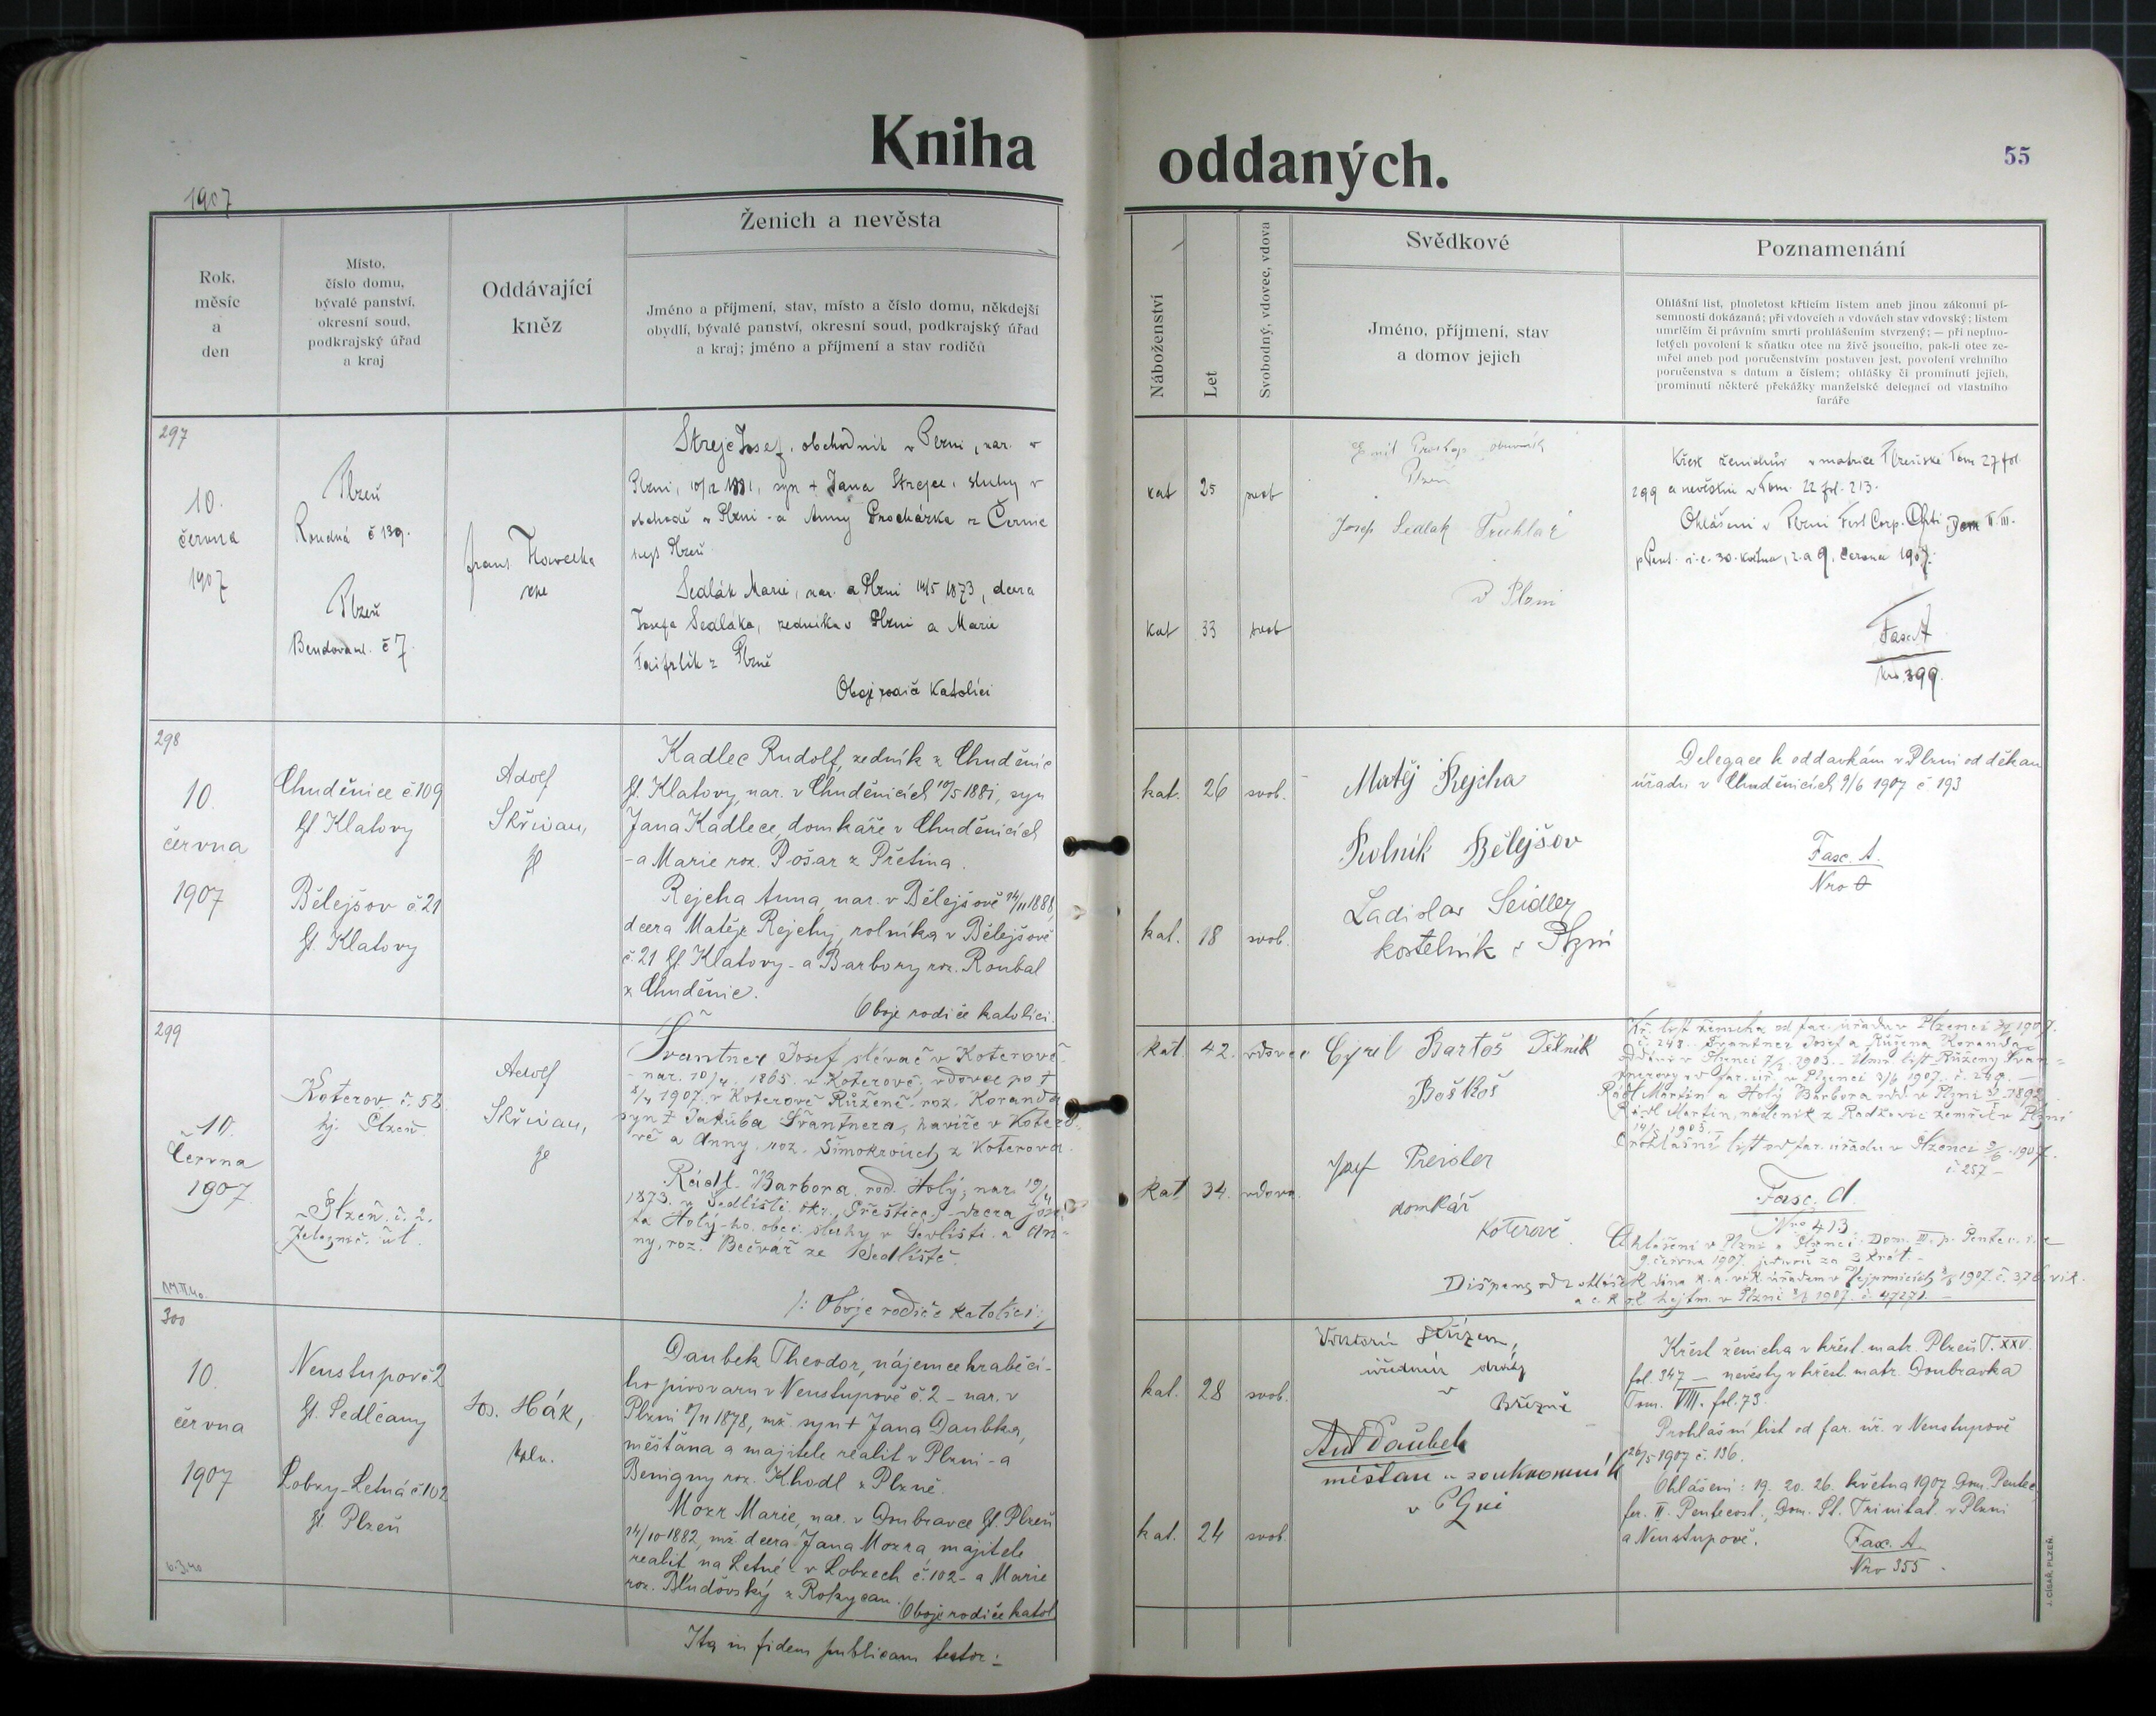 Kniha oddaných.
55
1907
Rok, měsíc a den
Místo, číslo domu, bývalé panství, okresní soud, podkrajský úřad a kraj
Oddávající kněz
Ženich a nevěsta
Jméno a příjmení, stav, místo a číslo domu, někdejší
obydlí, bývalé panství, okresní soud, podkrajský úřad
a kraj; jméno a příjmení a stav rodičů
Náboženství
Let
Svobodný, vdovec, vdova
Svědkové
Jméno, příjmení, stav
a domov jejich
Poznamenání
Ohlášní list, plnoletost křticím listem aneb jinou zákonní pí-
semností dokázaná; při vdovcích a vdovách stav vdovský; listem
umrlčím či právním smrti prohlášením stvrzený; — při neplno-
letých povolení k sňatku otce na živě jsoucího, pak-li otce ze-
mřel aneb pod poručenstvím postaven jest, povolení vrchního
poručenstva s datum a číslem; ohlášky či prominutí jejich,
prominutí některé překážky manželské delegací od vlastního
faráře
297
10.
června
1907
Plzeň
Roudná č 139.
Plzeň
č 7.
Strejc Josef, obchodník v Plzni, nar. v
Plzni, 10/12 1881, syn + Jana Strejce, sluhy v
obchodě v Plzni - a Anny Procházka z Černic
hejt. Plzeň
Sedlák Marie, nar. v Plzni 14/5 1873, dcera
Josefa Sedláka, zedníka v Plzni a Marie
z Plzně
Oboje rodiče katolíci
kat 25 svob
kat 33 svob
Plzeň
Josef Sedlak Truhlář
v Plzni
Křest ženichův v matrice Plzeňské Tom 27 fol.
299 a nevěstin v Tom. 22 fol. 213.
Ohlášeni v Plzni Fest Corp. Chti Dom II. III.
p Pent. i. e. 30. května, 2. a 9. června 1907.
Fasc. A
Nro. 399.
298
10.
června
1907
Chuděnice č. 109
hjt. Klatovy
Bělejšov č. 21
hjt. Klatovy
Adolf
Skřivan,
Kadlec Rudolf, zedník z Chuděnic
hjt. Klatovy, nar. v Chuděnicích 10/5 1881, syn
Jana Kadlece, domkáře v Chuděnicích
- a Marie roz. Pošar z Přetína.
Rejcha Anna, nar. v Bělejšově 24/11 1888,
dcera Matěje Rejchy, rolníka v Bělejšově
č. 21 hjt. Klatovy - a Barbory roz. Roubal
z Chuděnic.
Oboje rodiče katolíci.
kat. 26 svob.
kat. 18 svob.
Matěj Rejcha
Rolník Bělejšov
Ladislav Seidler
kostelník v Plzni
Delegace k oddavkám v Plzni od děkan
úřadu v Chuděnicích 9/6 1907 č 193
Fasc. A.
Nro
299
10.
Června
1907.
Koterov č. 58
hj. Plzeň.
Plzeň č. 2.
Železnič. ul.
Adolf
Skřivan,
Švantner Josef, slévač v Koterově
- nar. 1865. v Koterově, vdovec po +
1907. v Koterově Růženě roz. Koranda
syn + Jakuba Švantnera, havíře v Kotero-
vě a Anny, roz. z Koterova.
Rádl Barbora, roz. Holý, nar. 19/4
1873. v Sedlišti okr. Přeštice, - dcera Jose-
fa Holý-ho, obec. sluhy v Sedlišti, a An-
ny, roz. Bečvář ze Sedliště.
/: Oboje rodiče katolíci :/
kat. 42. vdovec
kat 34. vdova.
Cyril Bartoš Dělník
Božkov
Josef Preisler
domkář
Koterově.
Kř. list ženicha od far. úřadu v Plzenci 1907.
Švantner Josef a Růžena Koranda
oddáni v Plzenci 1903. - Úmr. list Růženy Švan-
tnerovy od far. úř. v Plzenci 3/6 1907. č. 240. -
Rádl Martin a Holý Barbora odd. v Plzni 1892.
Rádl Martin, nádeník z Radkovic zemřel v Plzni
1905. -
Prohlášní list od far. úřadu v Plzenci 9/6 1907.
č. 257 -
Fasc. A.
Nro 413.
Ohlášeni v Plzni a Plzenci Dom. III. p. Pentec. i. e
9. června 1907. jednou za 3 krát. -
Dispens od 2 ohlášek dána k. a. vik. úřadem v 1907. č. 376. vik.
a c. k. okr. hejtm. v Plzni 8/6 1907. č. 47271. -
300
10.
června
1907
6.3.40
Neustupov č 2
hjt. Sedlčany
Lobzy-Letná č 102
hjt. Plzeň
Jos. Hák,
Daubek Theodor, nájemce hraběcí-
ho pivovaru v Neustupově č. 2 - nar. v
Plzni 8/11 1878, mž. syn + Jana Daubka,
měšťana a majitele realit v Plzni - a
Benigny roz. Khodl z Plzně.
Mozr Marie, nar. v Doubravce hjt. Plzeň
14/10 1882, mž. dcera Jana Mozra majitele
realit na Letné - v Lobzech č. 102 - a Marie
roz. Bludovský z Rokycan. Oboje rodiče katol.
kat. 28 svob.
kat. 24 svob.
úředník dráhy
v
Březně
Ant Daubek
měšťan a soukromník
v Plzni
Křest ženicha v křest. matr. Plzeň T. XXV.
fol. 347 - nevěsty v křest. matr. Doubravka
Tom. VIII. fol. 73.
Prohlášní list od far. úř. v Neustupově
26/5 1907 č. 136.
Ohlášeni: 19. 20. 26. května 1907 Dom. Pentec.
fer. II. Pentecost., Dom. St. Trinitat. v Plzni
a Neustupově.
Fasc. A
Nro 355.
Ita in fidem publicam testor:
J. CÍSAŘ, PLZEŇ